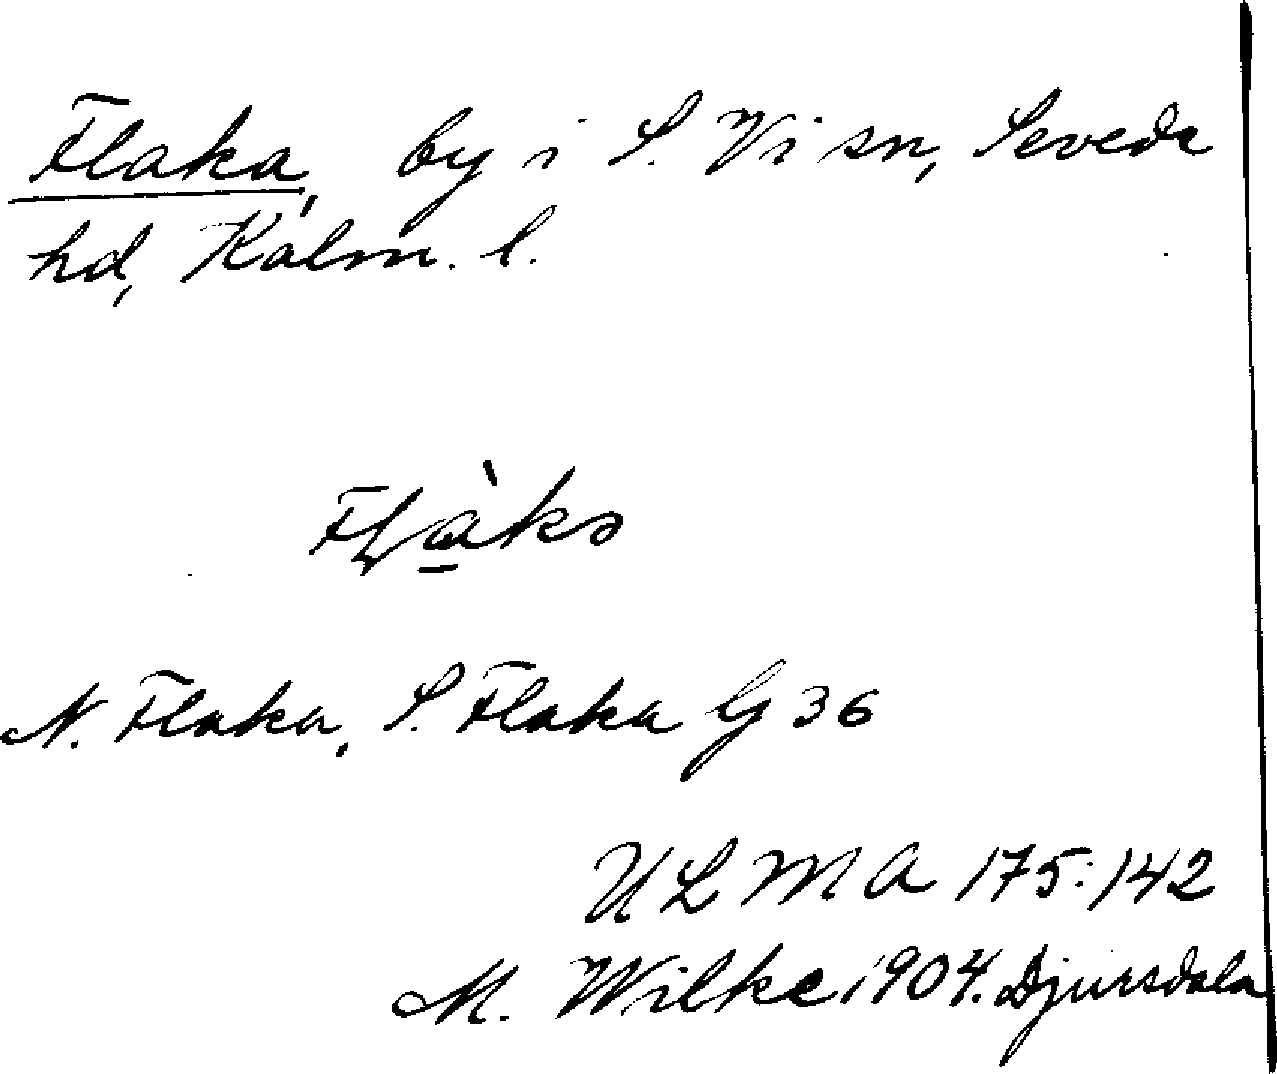 Flaka, by i S. Vi sn, Sevede
hd, Kalm. l.
Flàkə
N. Flaka, S. Flaka G 36
ULMA 175:142
M. Wilke 1904. Djursdala